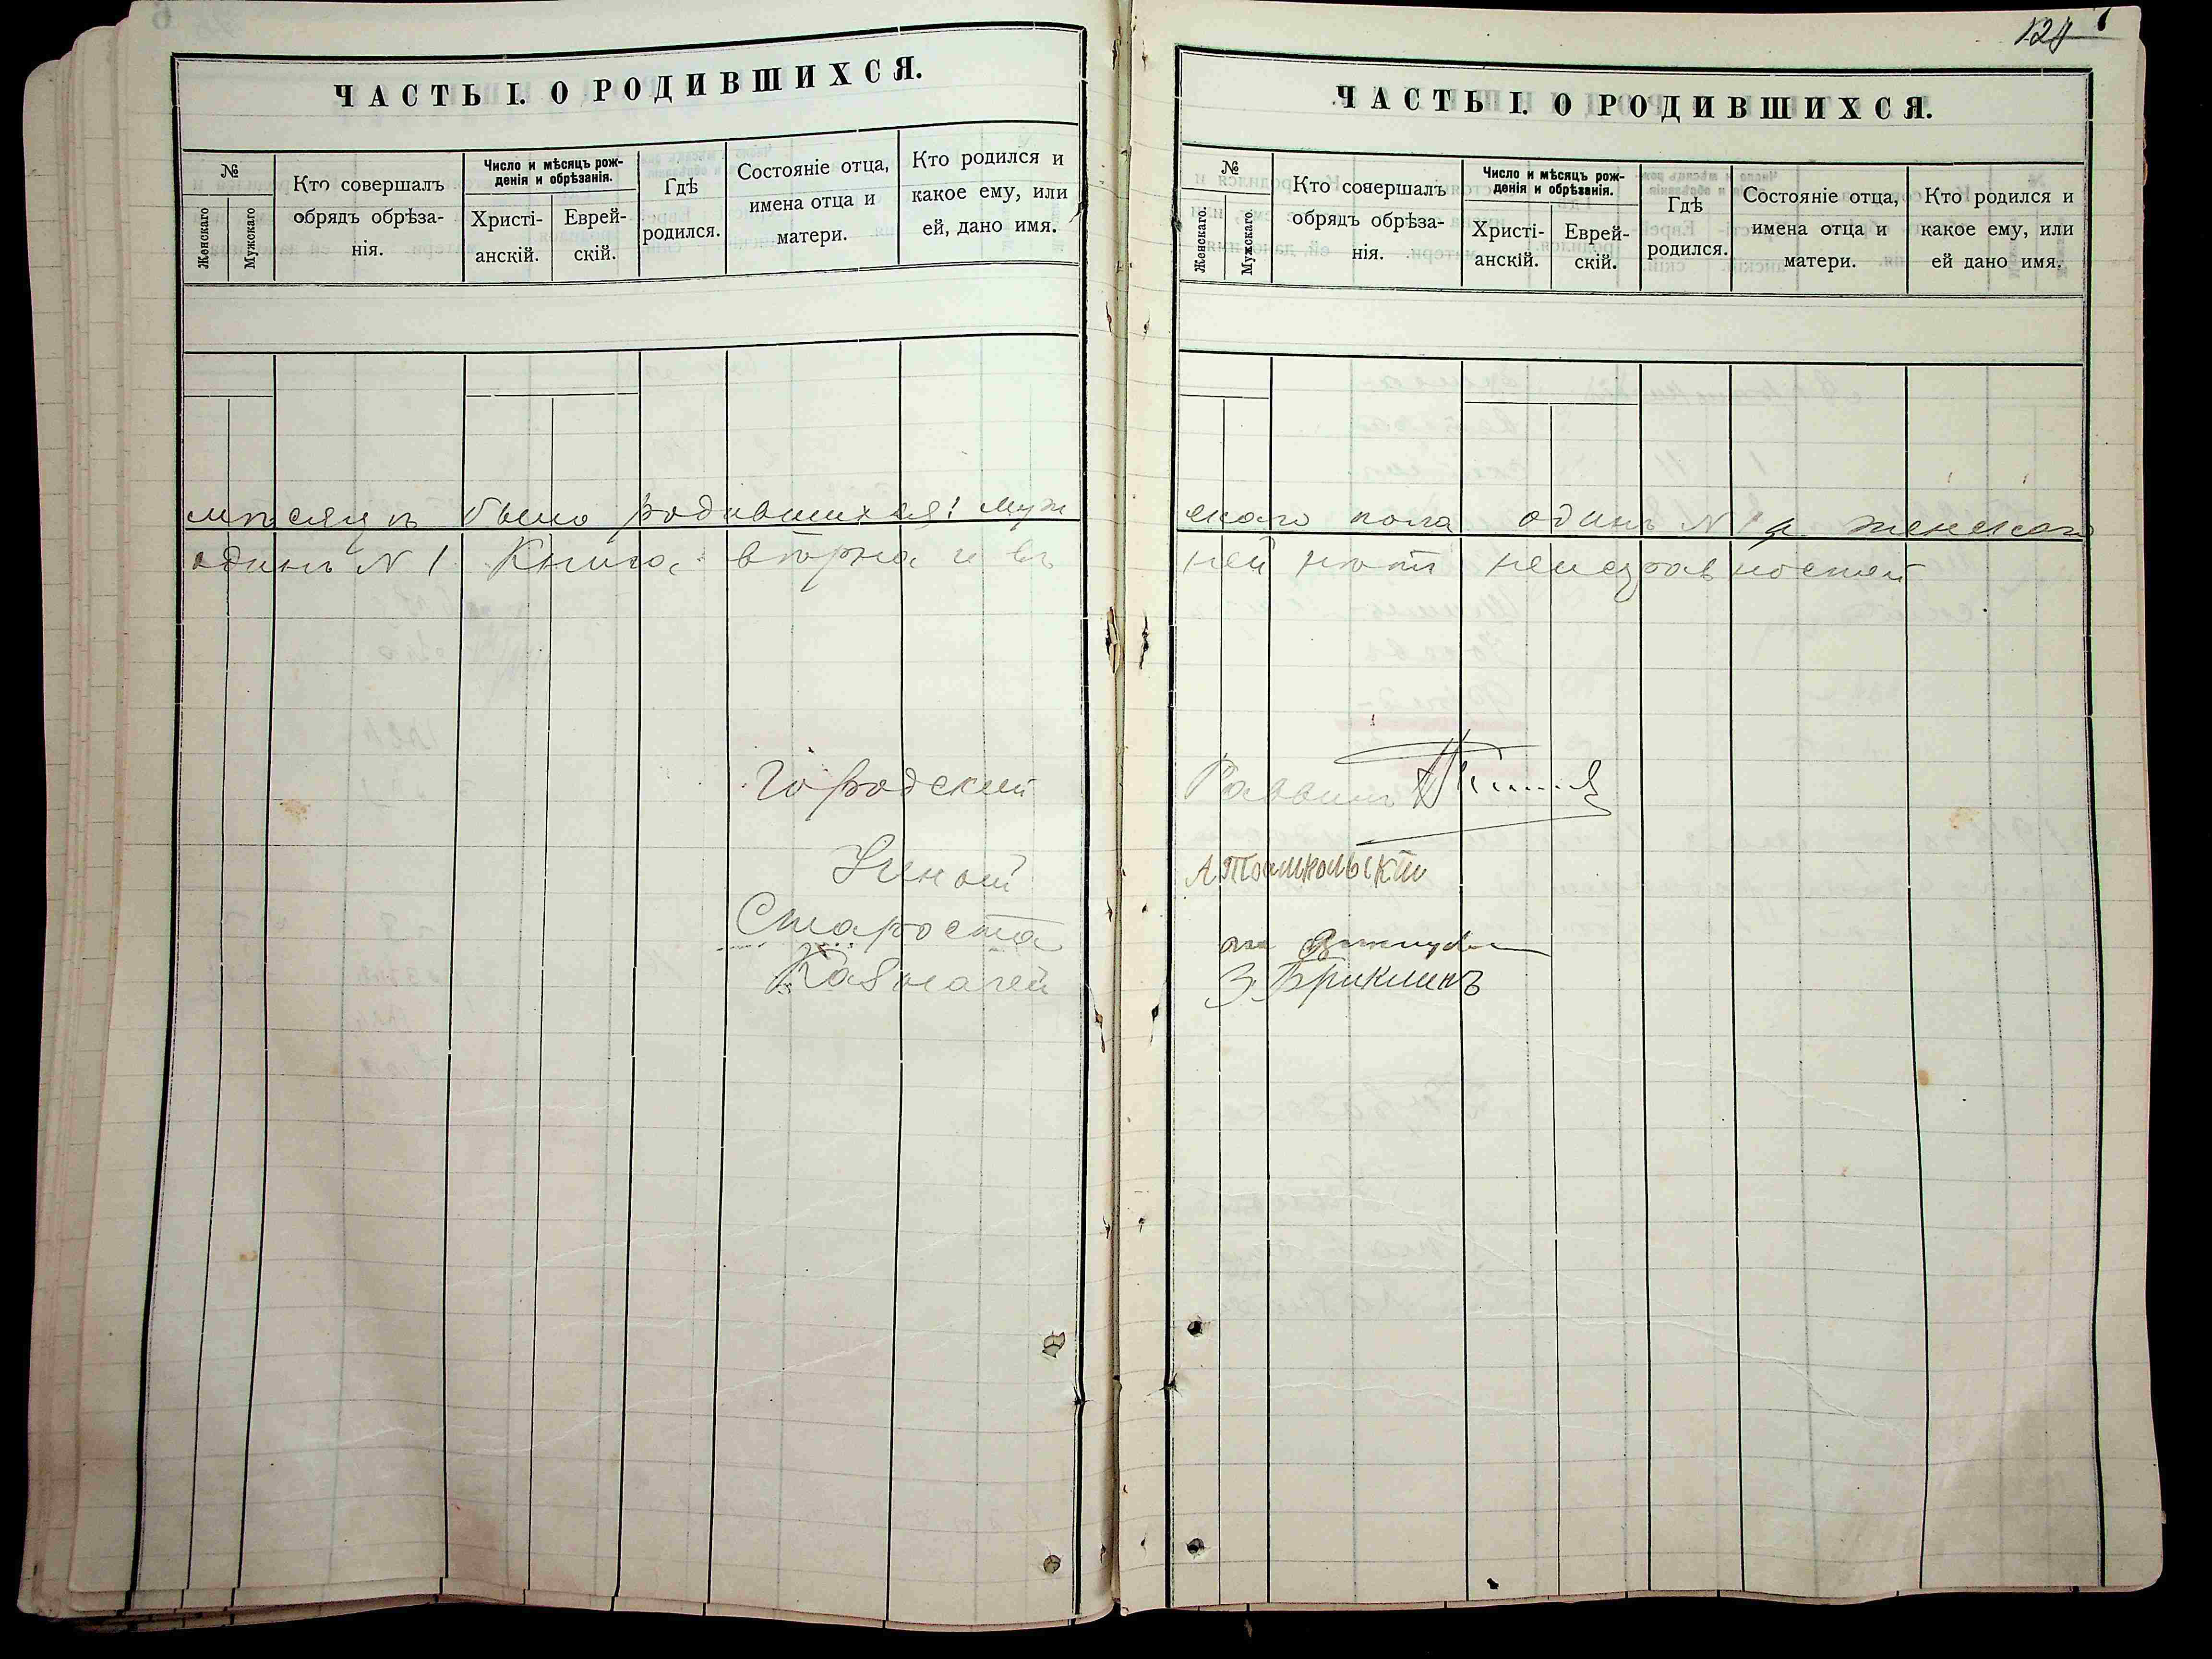 ЧАСТЬ I. О РОДИВШИХСЯ.
№
Женскаго
Мужскаго
Кто совершалъ
обрядъ обрѣза-
нія.
Число и мѣсяцъ рож-
денія и обрѣзанія.
Христі-
анскій.
Еврей-
скій.
Гдѣ
родился.
Состояніе отца,
имена отца и
матери.
Кто родился и
какое ему, или
ей, дано имя.
мѣсяцъ было родившихся: муж
одинъ N 1 Книга вѣрна и въ
Городской
Ученой
Староста
Казначей
124
7
ЧАСТЬ I. О РОДИВШИХСЯ.
№
Женскаго.
Мужскаго.
Кто совершалъ
обрядъ обрѣза-
нія.
Число и мѣсяцъ рож-
денія и обрѣзанія.
Христі-
анскій.
Еврей-
скій.
Гдѣ
родился.
Состояніе отца,
имена отца и
матери.
Кто родился и
какое ему, или
ей дано имя.
скаго пола одинъ N 1 а женскаго
ней нѣтъ неисправностей
Раввинъ
З. Бриклинъ